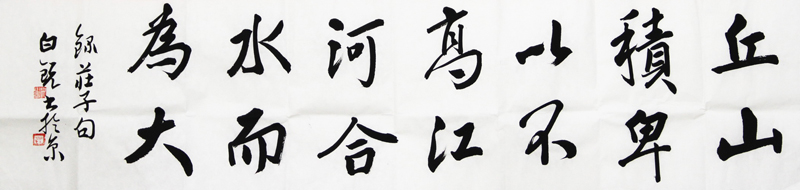 丘山
積卑
以不
高江
河合
水而
為大
錄莊子句
白 書於京